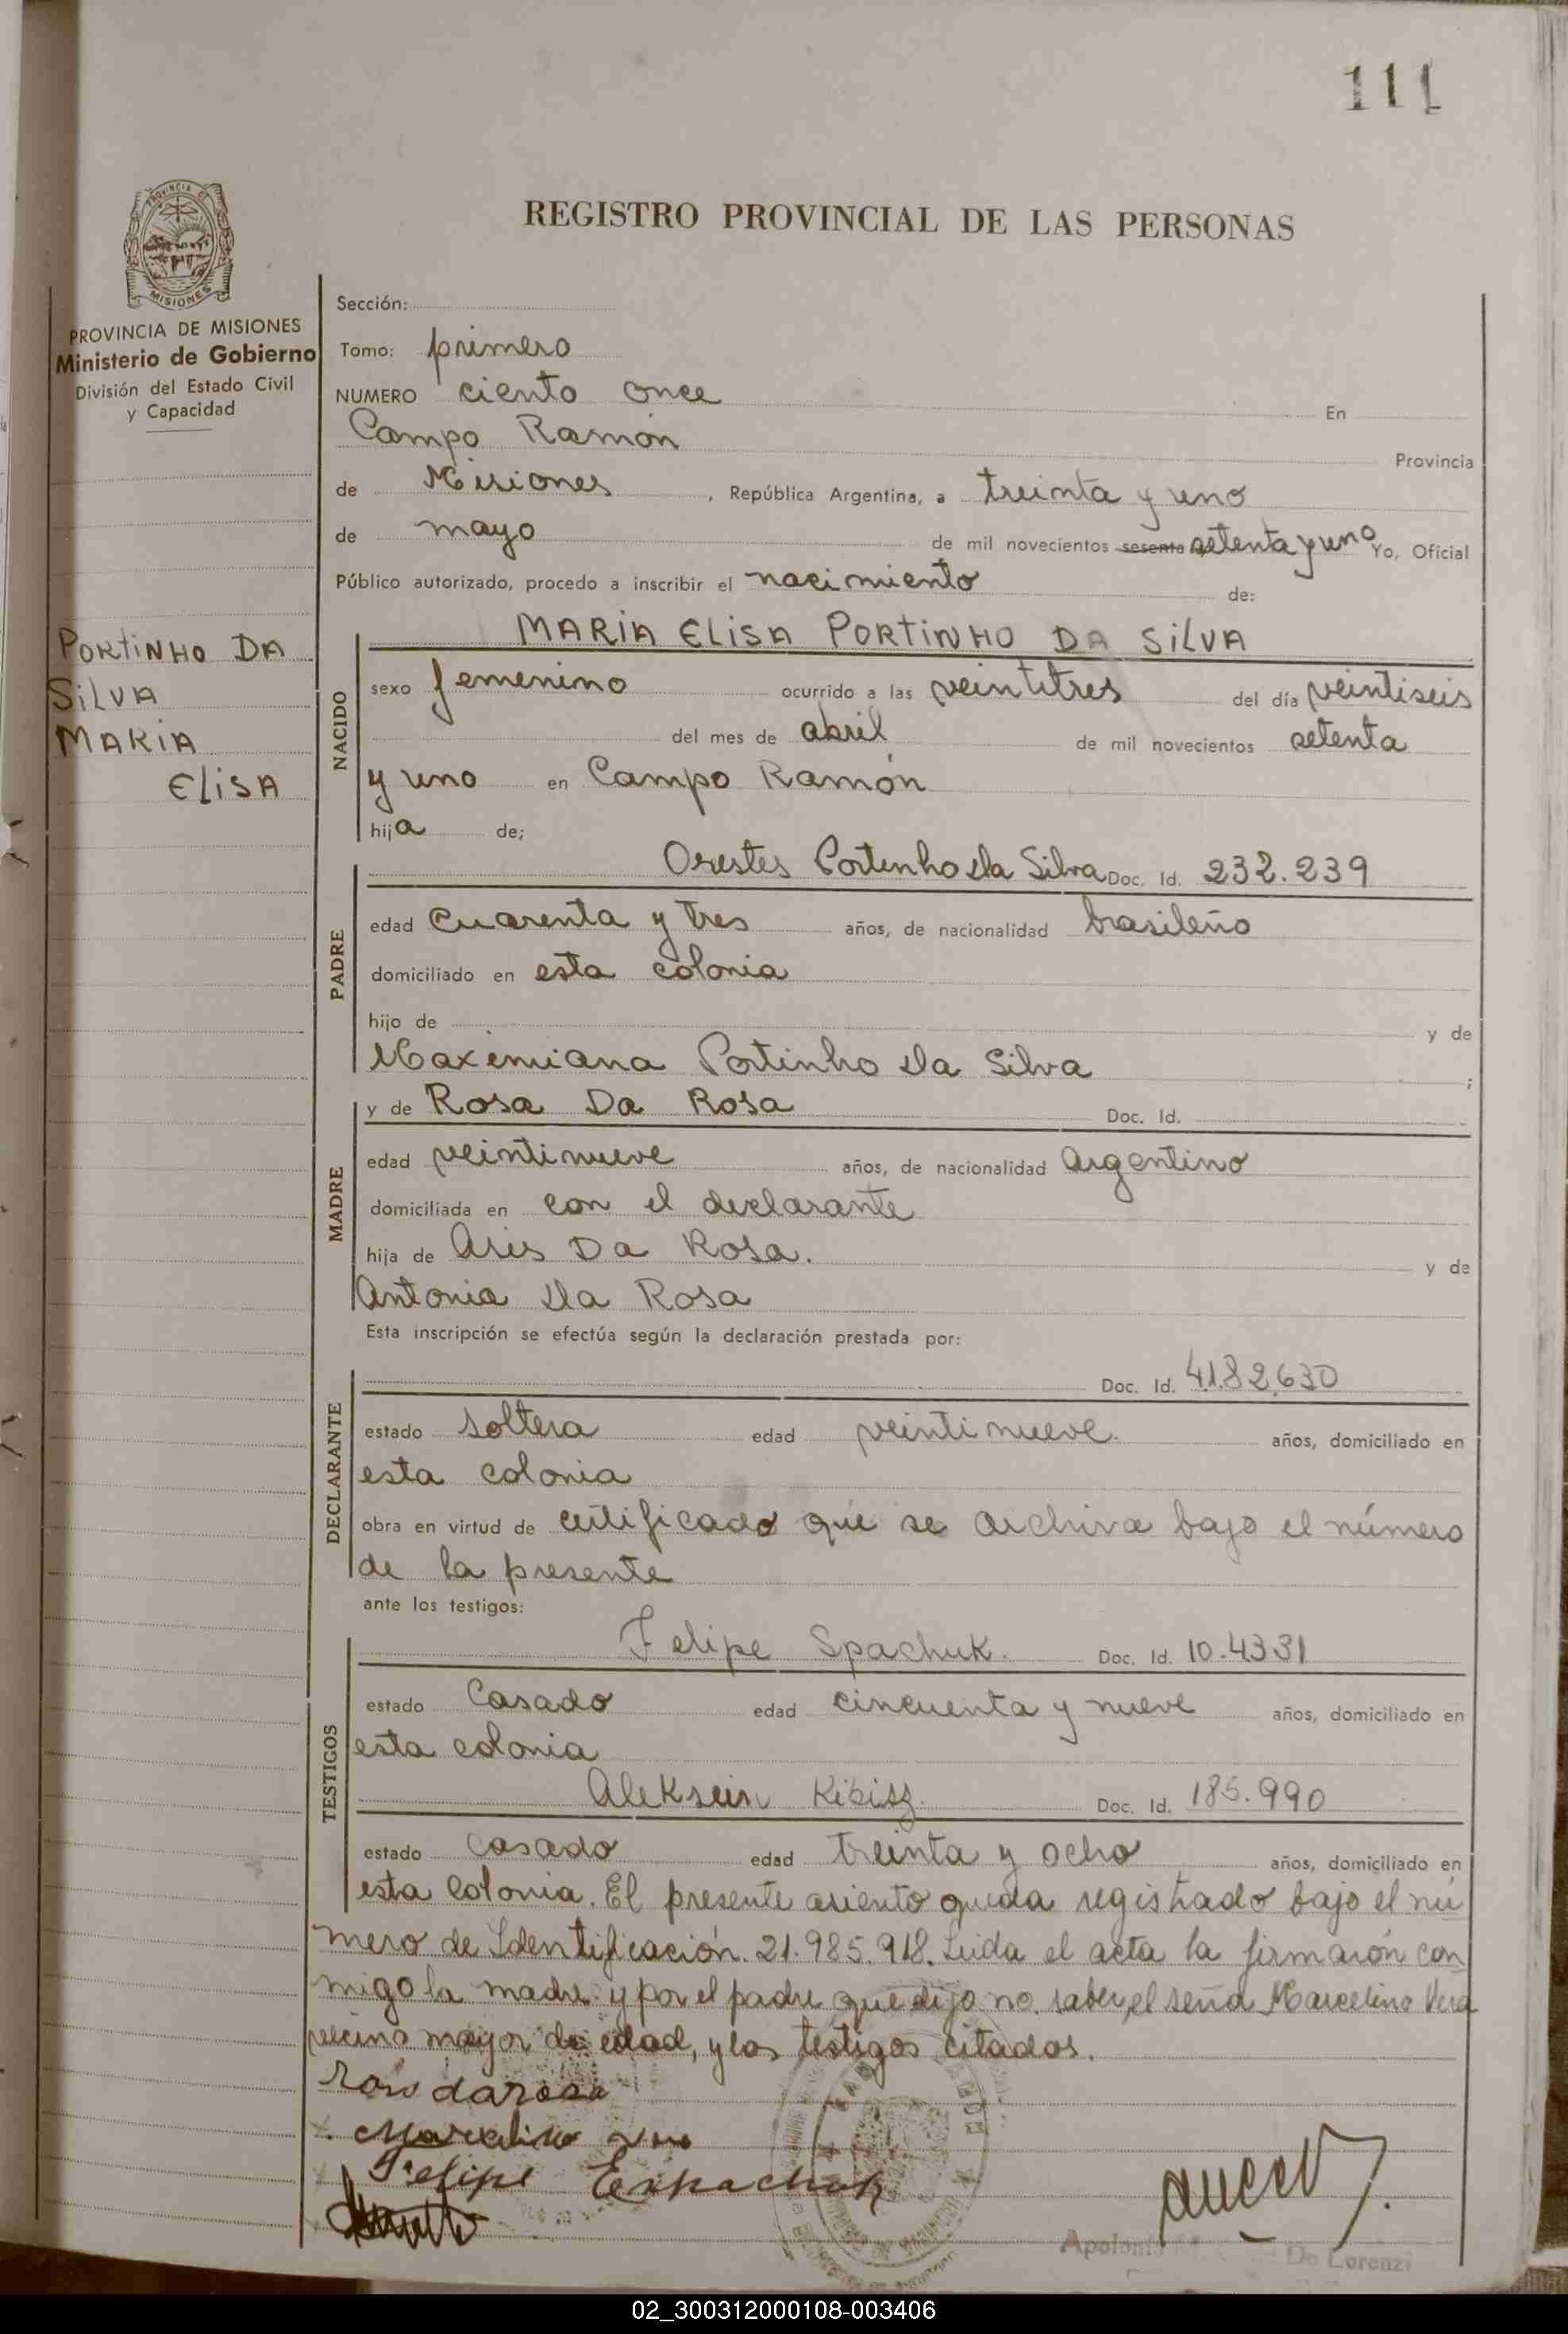 111
PROVINCIA DE
MISIONES
PROVINCIA DE MISIONES
Ministerio de Gobierno
División del Estado Civil
y Capacidad
PORTINHO DA
SILVA
MARIA
ELISA
REGISTRO PROVINCIAL DE LAS PERSONAS
Sección:
Tomo: primero
NUMERO ciento once En
Campo Ramón Provincia
de Misiones, República Argentina, a treinta y uno
de mayo de mil novecientos sesenta setenta y uno Yo, Oficial
Público autorizado, procedo a inscribir el nacimiento de:
MARIA ELISA PORTINHO DA SILVA
NACIDO
sexo femenino ocurrido a las veintitres del día veintiseis
del mes de abril de mil novecientos setenta
y uno en Campo Ramón
hija de;
PADRE
Orestes Portinho da Silva Doc. Id. 232.239
edad cuarenta y tres años, de nacionalidad brasileño
domiciliado en esta colonia
hijo de y de
Maximiana Portinho da Silva ;
MADRE
y de Rosa Da Rosa Doc. Id.
edad veintinueve años, de nacionalidad Argentino
domiciliada en con el declarante
hija de Aris Da Rosa. y de
Antonia da Rosa
Esta inscripción se efectúa según la declaración prestada por:
DECLARANTE
Doc. Id. 4.182.630
estado soltera edad veintinueve. años, domiciliado en
esta colonia
obra en virtud de certificado que se archiva bajo el número
de la presente
ante los testigos:
TESTIGOS
Felipe Spachuk. Doc. Id. 10.4331
estado Casado edad cincuenta y nueve años, domiciliado en
esta colonia
Aleksein Doc. Id. 185.990
estado casado edad treinta y ocho años, domiciliado en
esta colonia. El presente asiento queda registrado bajo el nú
mero de Identificación. 21.985.918. Leida el acta la firmarón con
migo la madre y por el padre que dijo no saber, el señor Marcelino Vera
vecino mayor de edad, y los testigos citados.
Rosa da rosa
Marcelino Vera
Felipe Espachuk
De Lorenzi
02_300312000108-003406